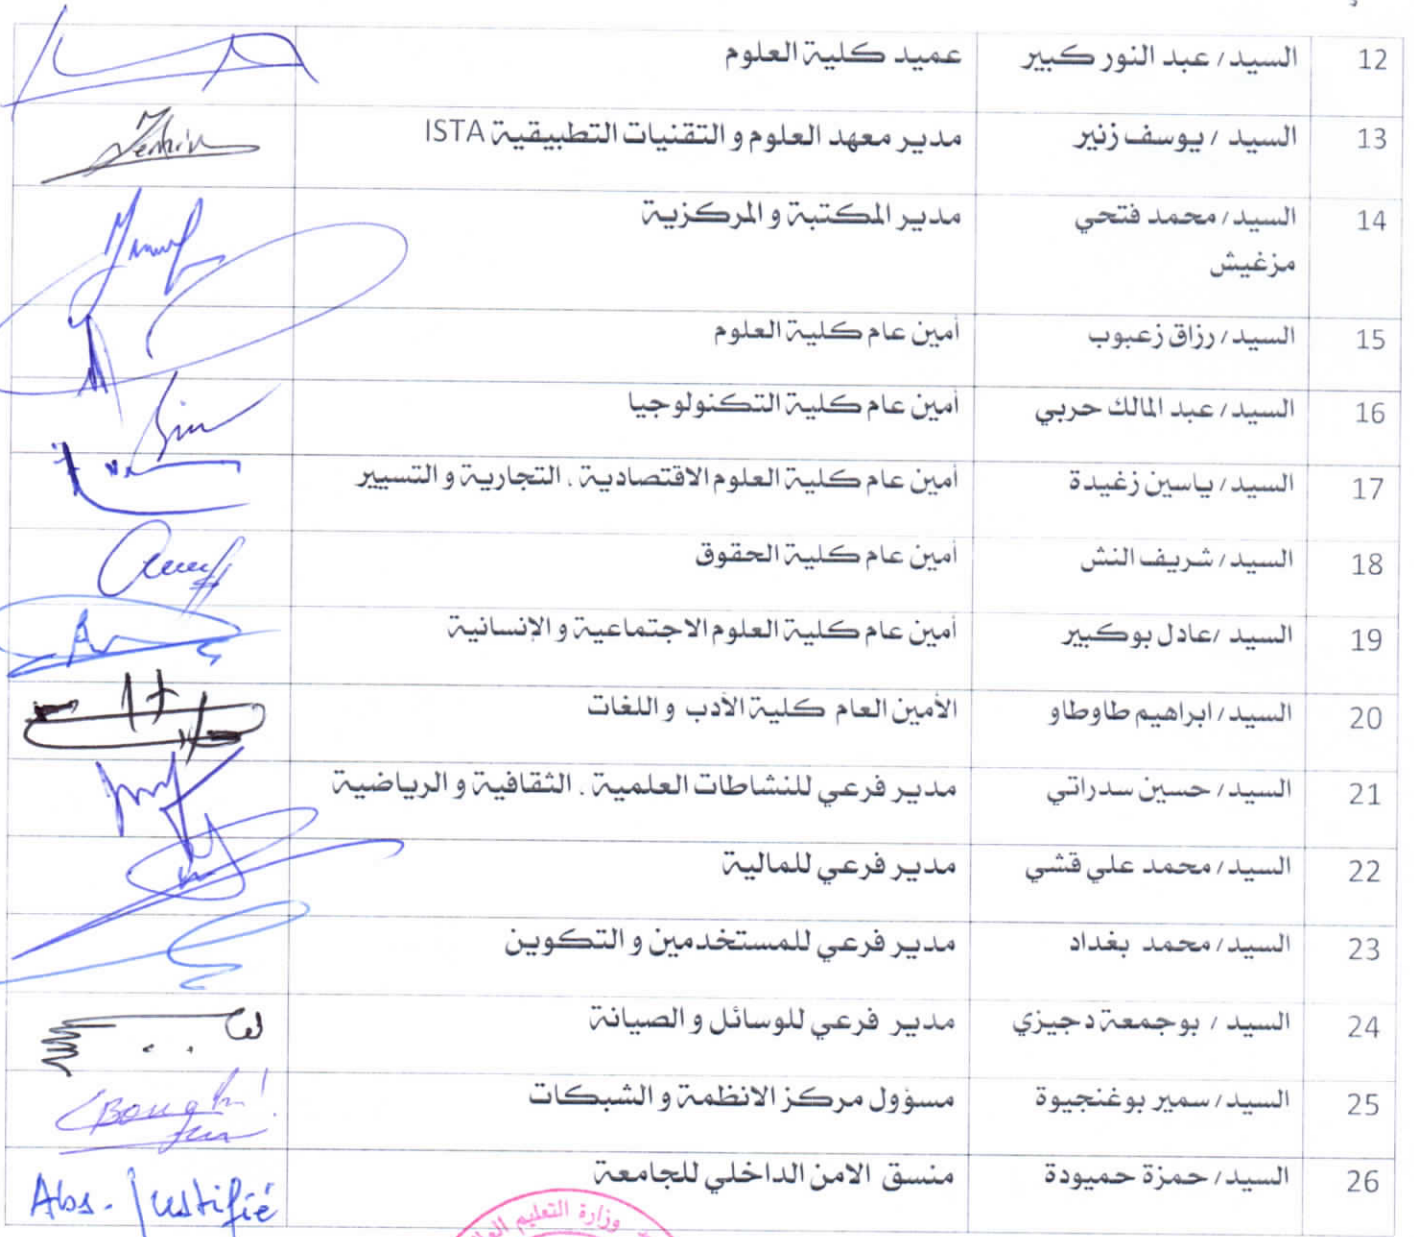 12 السيد / عبد النور كبير عميد كلية العلوم
13 السيد / يوسف زنير مدير معهد العلوم و التقنيات التطبيقية ISTA
14 السيد / محمد فتحي مدير المكتبة و المركزية
مزغيش
15 السيد / رزاق زعبوب أمين عام كلية العلوم
16 السيد / عبد المالك حربي أمين عام كلية التكنولوجيا
17 السيد / ياسين زغيدة أمين عام كلية العلوم الاقتصادية . التجارية و التسيير
18 السيد / شريف النش أمين عام كلية الحقوق
19 السيد / عادل بوكبير أمين عام كلية العلوم الاجتماعية و الإنسانية
20 السيد / ابراهيم طاوطاو الأمين العام كلية الأدب و اللغات
21 السيد / حسين سدراتي مدير فرعي للنشاطات العلمية . الثقافية و الرياضية
22 السيد / محمد علي قشي مدير فرعي للمالية
23 السيد / محمد بغداد مدير فرعي للمستخدمين و التكوين
24 السيد / بوجمعة دجيزي مدير فرعي للوسائل و الصيانة
25 السيد / سمير بوغنجيوة مسؤول مركز الانظمة و الشبكات
26 السيد / حمزة حميودة منسق الامن الداخلي للجامعة Abs. Justifié
وزارة التعليم